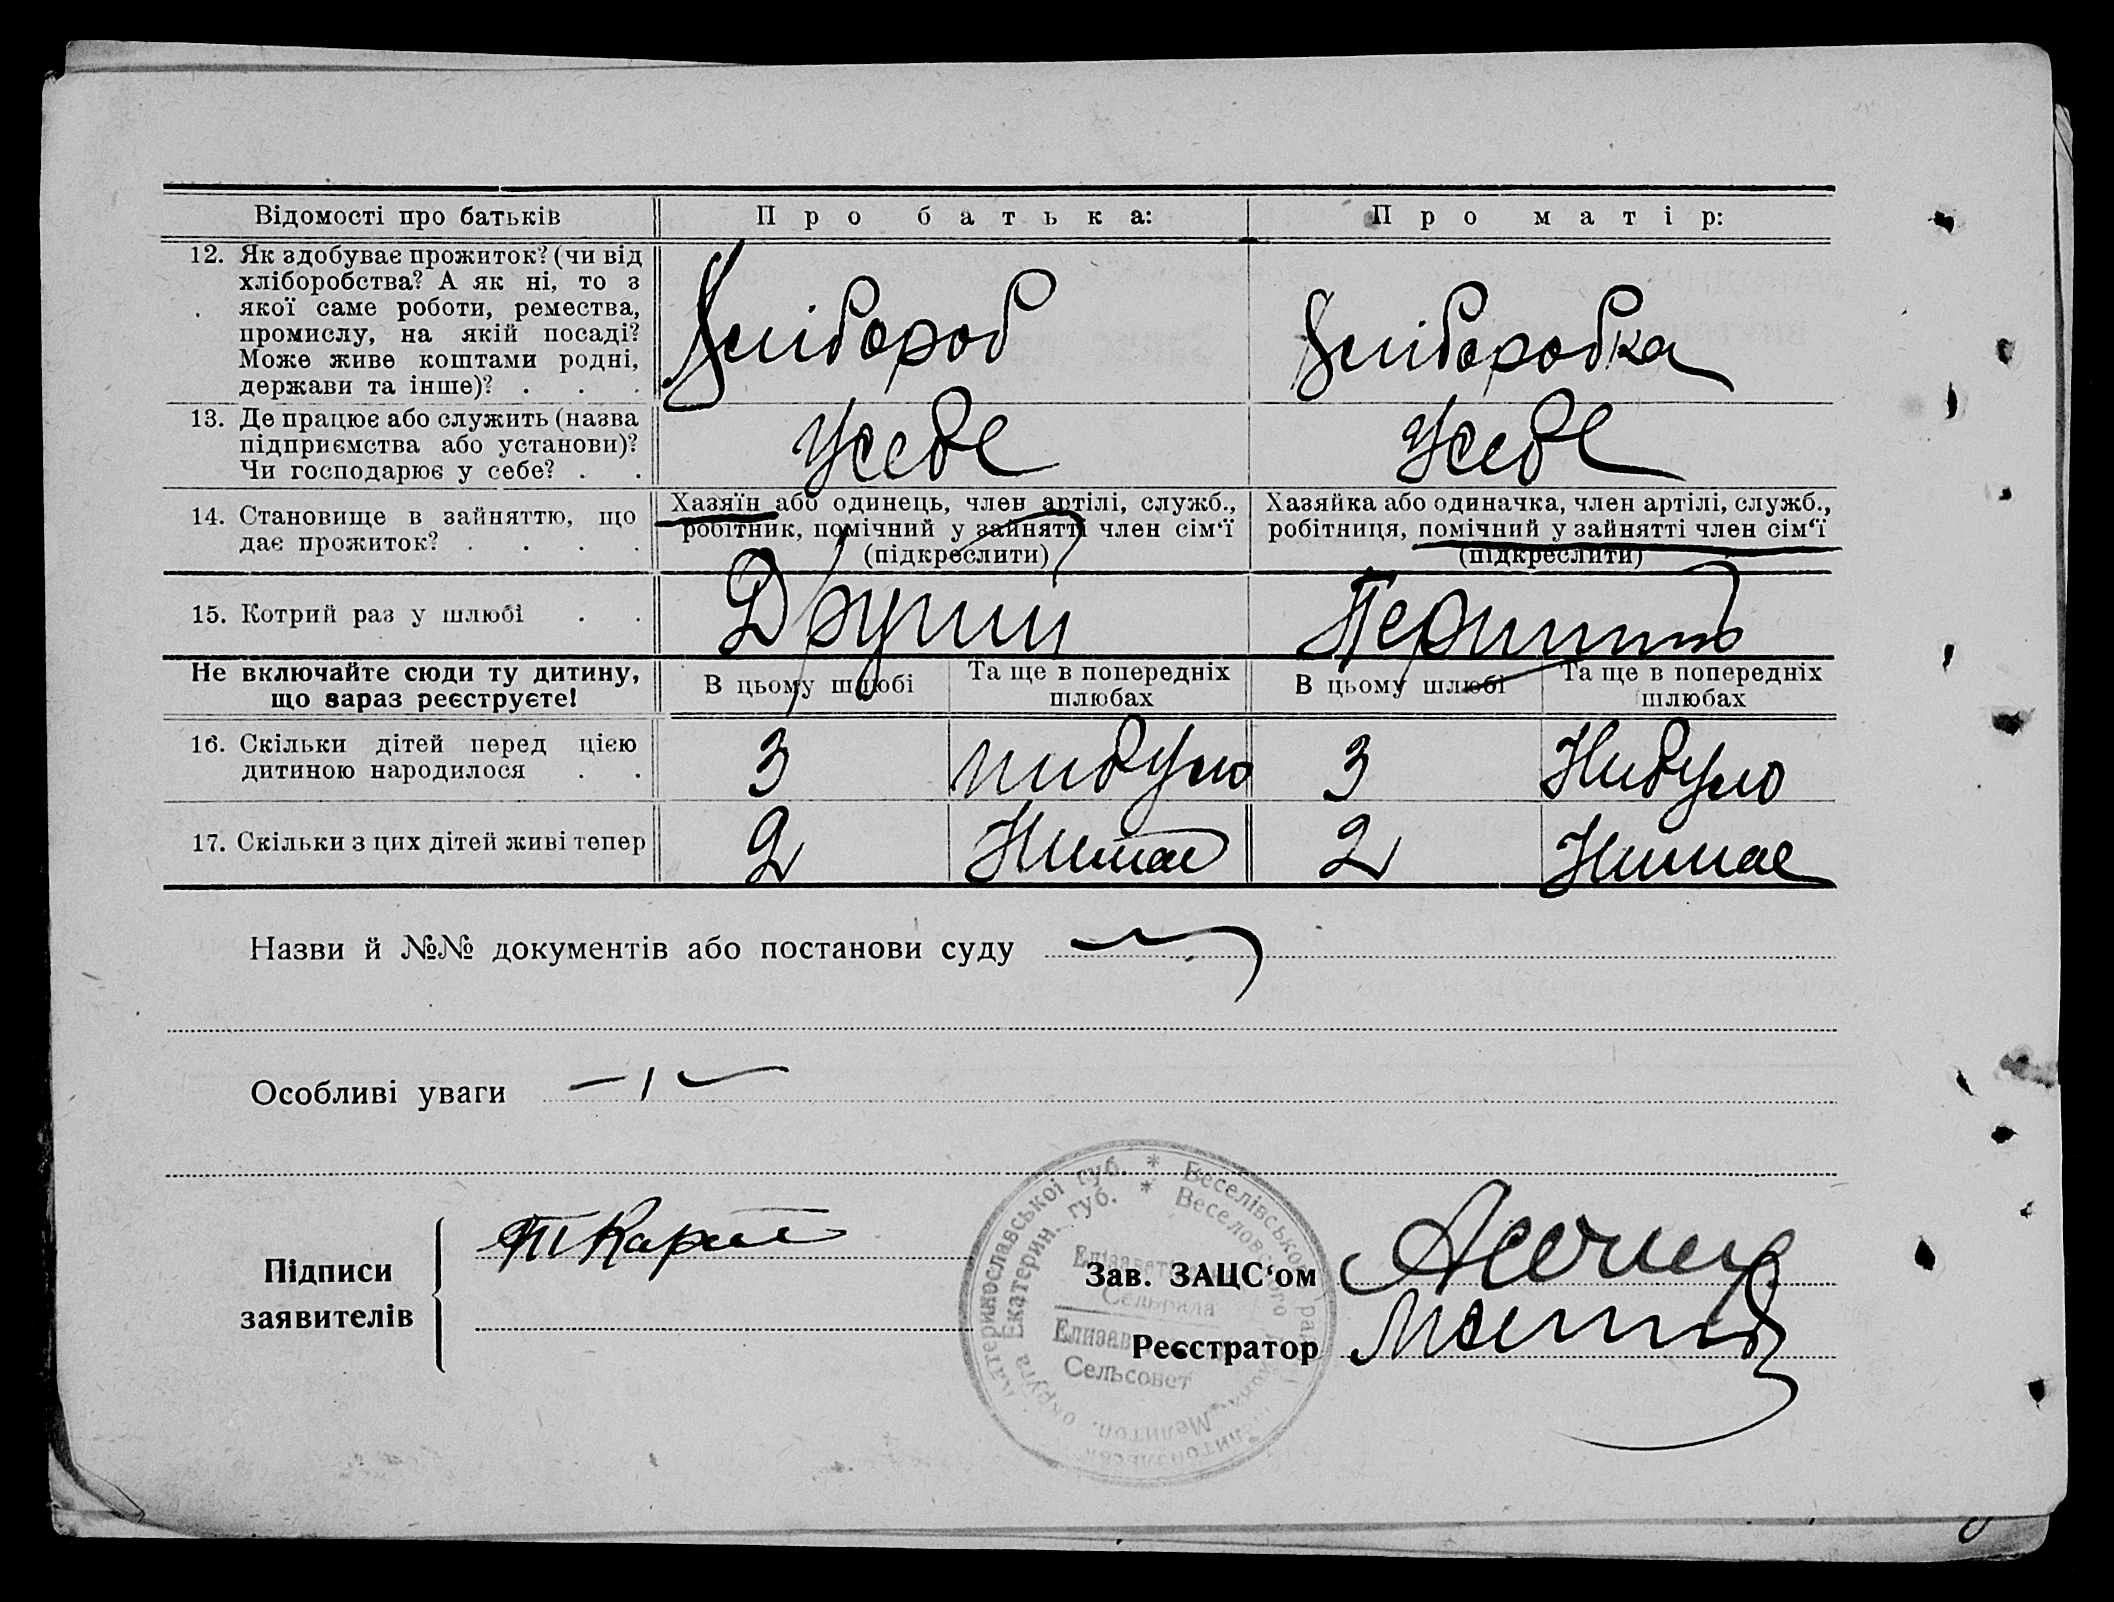 Відомості про батьків
Про батька:
Про матір:
12. Як здобуває прожиток? (чи від
хліборобства? А як ні, то з
якої саме роботи, ремества,
промислу, на якій посаді?
Може живе коштами родні,
держави та інше)? . . .
Хлібороб
Хліборобка
13. Де працює або служить (назва
підприємства або установи)?
Чи господарює у себе? . .
Усебе
Усебе
14. Становище в зайняттю, що
дає прожиток? . . . .
Хазяїн або одинець, член артілі, служб.,
робітник, помічний у зайнятті член сім'ї
(підкреслити)
Хазяйка або одиначка, член артілі, служб.,
робітниця, помічний у зайнятті член сім'ї
(підкреслити)
15. Котрий раз у шлюбі . .
Другий
Перший
Не включайте сюди ту дитину,
що зараз реєструєте!
В цьому шлюбі
Та ще в попередніх
шлюбах
В цьому шлюбі
Та ще в попередніх
шлюбах
16. Скільки дітей перед цією
дитиною народилося . .
3
нибуло
3
Нибуло
17. Скільки з цих дітей живі тепер
2
Нимає
2
Нимае
Назви й №№ документів або постанови суду
Особливі уваги
Підписи
заявителів
Зав. ЗАЦС'ом
Реєстратор
катеринославської губ. * Веселівського рай
округа Екатерин. губ. * Веселовского
Мелитоп.
Сельрада
Сельсовет